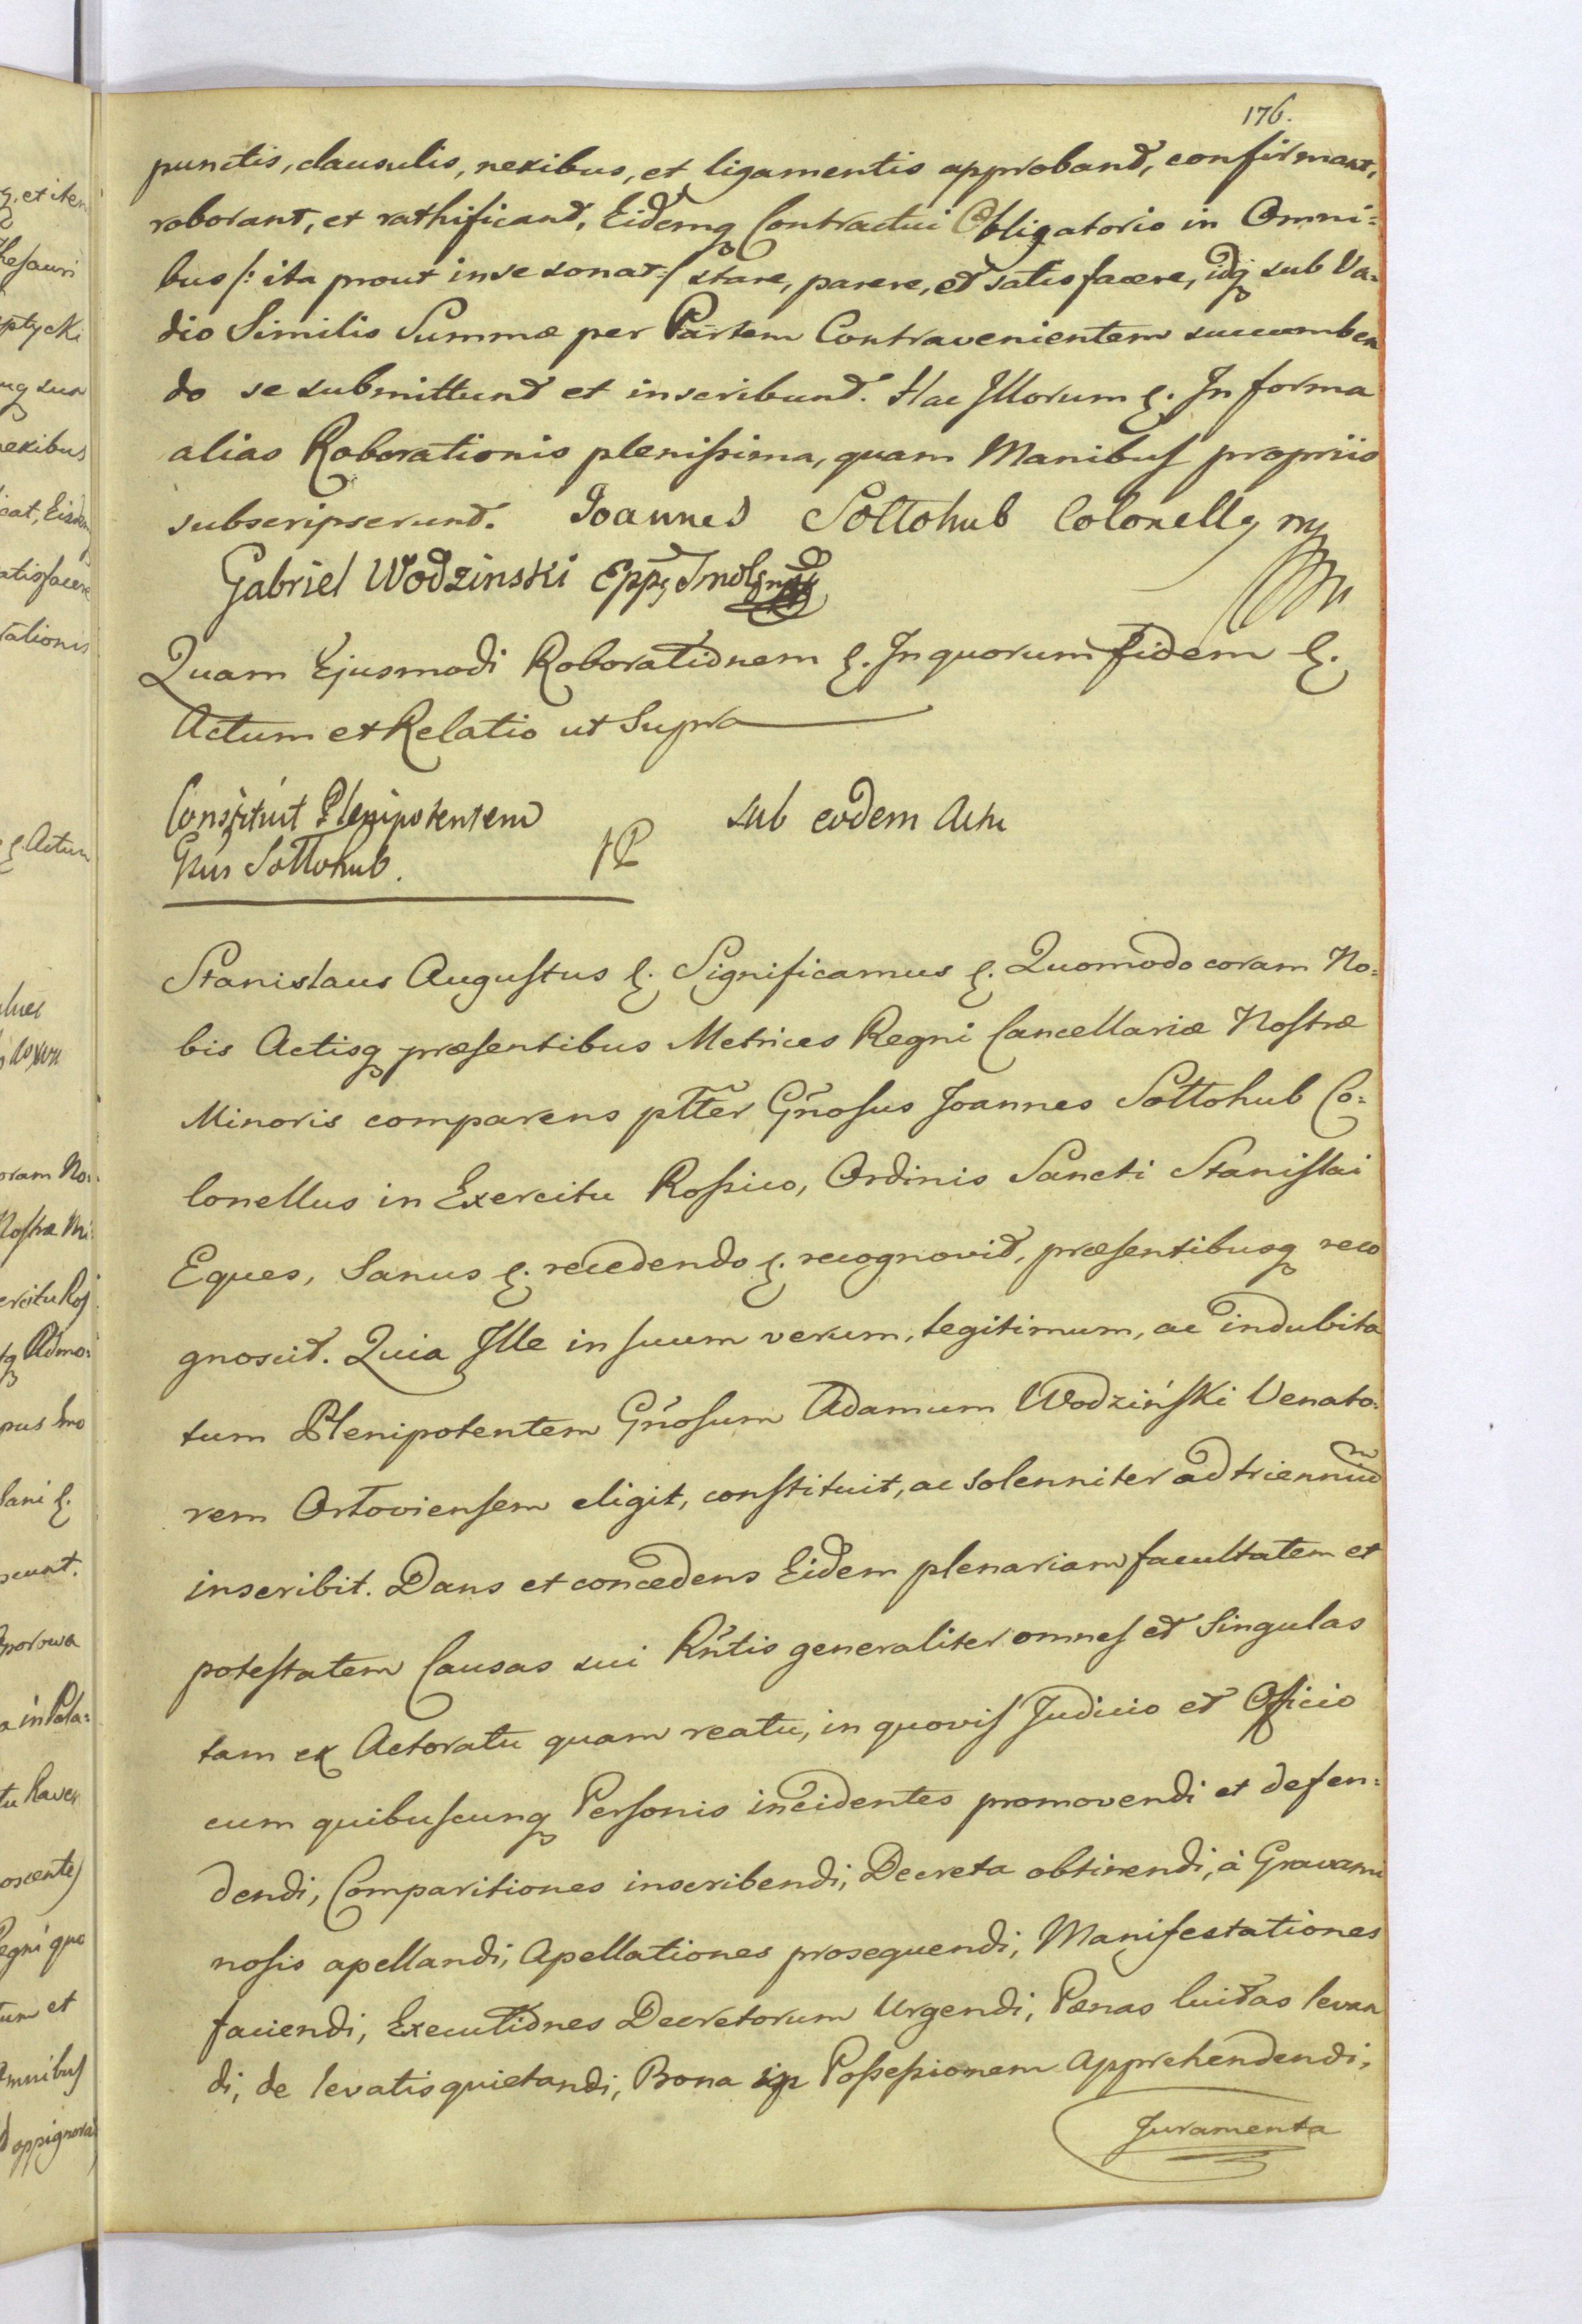 176.
punctis, clausulis, nexibus, et ligamentis approband, confirmant,
roborant, et rathificand, Eidemq Contractui Obligatorio in Omni=
bus /: ita prout in se sonat :/ stare, parere, et satisfacere, idq sub Va=
dio Similis Summæ per Partem Contravenientem succumben
do se submittund et inscribund. Hac Illorum &. In forma
alias Roborationis plenissima, quam Manibus propriis
subscripserund. Joannes Sołłohub Colonellq
Gabriel Wodzinski Eppq
Quam Ejusmodi Roborationem &. In quorum fidem &.
Actum et Relatio ut Supra
Constituit Plenipotentem
sub eodem Actu
Gsus Sołłohub.
Stanislaus Augustus &. Significamus &. Quomodo coram No=
bis Actisq præsentibus Metrices Regni Cancellariæ Nostræ
Minoris comparens pltter Gnosus Joannes Sołłohub Co=
lonellus in Exercitu Rossico, Ordinis Sancti Stanislai
Eques, Sanus &. recedendo &. recognovit, præsentibusq reco
gnoscit. Quia Ille in suum verum, legitimum, ac indubita
tum Plenipotentem Gnosum Adamum Wodziński Venato=
rem Orłoviensem eligit, constituit, ac solenniter ad triennium
inscribit. Dans et concedens Eidem plenariam facultatem et
potestatem Causas sui Rntis generaliter omnes et Singulas
tam ex Actoratu quam reatu, in quovis Judicio et Officio
cum quibuscunq Personis incidentes promovendi et defen=
dendi, Comparitiones inscribendi, Decreta obtinendi, à Gravami
nosis apellandi, Apellationes prosequendi, Manifestationes
faciendi, Executiones Decretorum Urgendi, Pænas luitas levan
di, de levatis quietandi, Bona in Possessionem Apprehendendi,
Juramenta